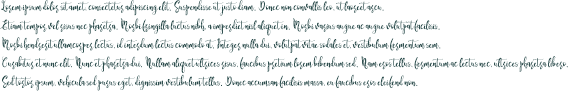 Lorem ipsum dolor sit amet, consectetur adipiscing elit. Suspendisse at justo diam. Donec non convallis leo, ut laoreet arcu.
Etiam tempus vel risus nec pharetra. Morbi fringilla lectus nibh, a imperdiet nisl aliquet in. Morbi varius augue ac augue volutpat facilisis.
Morbi hendrerit ullamcorper lectus, id interdum lectus commodo at. Integer nulla dui, volutpat vitae sodales et, vestibulum fermentum sem.
Curabitur et nunc elit. Nunc et pharetra dui. Nullam aliquet ultricies risus, faucibus pretium lorem bibendum sed. Nam eros tellus, fermentum ac lectus nec, ultricies pharetra libero.
Sed tortor ipsum, vehicula sed purus eget, dignissim vestibulum tellus. Donec accumsan facilisis massa, eu faucibus eros eleifend non.